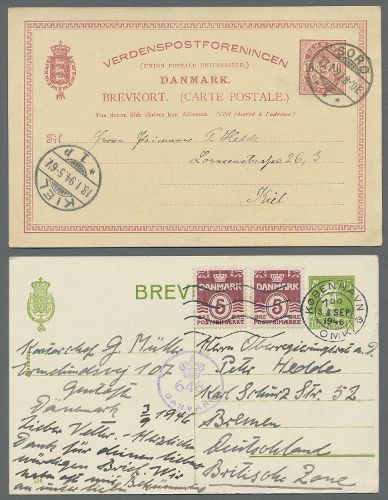 VERDENSPOSTFORENINGEN
(UNION POSTALE UNIVERSELLE.)
DANMARK.
BREVKORT. (CARTE POSTALE.)
Paa denne Side skrives kun Adressen. (Côté réservé à l'adresse.)
SORØ
Til Herrn Primaner P. Hedde
Lornsenstrasse 26, 3
Kiel
KIEL
1 P
18.1.94.5-6N.
BREV
DANMARK
5
ØRE
POSTFRIMÆRKE
DANMARK
5
ØRE
POSTFRIMÆRKE
KØBENHAVN
1946
OMK. 13
646
DANMARK
Kontorchef G. Müller
Ermelundsvej 107
Gentofte
Dänemark 3/9 1946
Lieber Vetter. Herzlichen
Dank für deinen lieben
würdigen Brief. Wir
Herrn Oberregierungsrat a. D.
Peter Hedde
Karl Schurz Str. 52
Bremen
Deutschland
Britische Zone